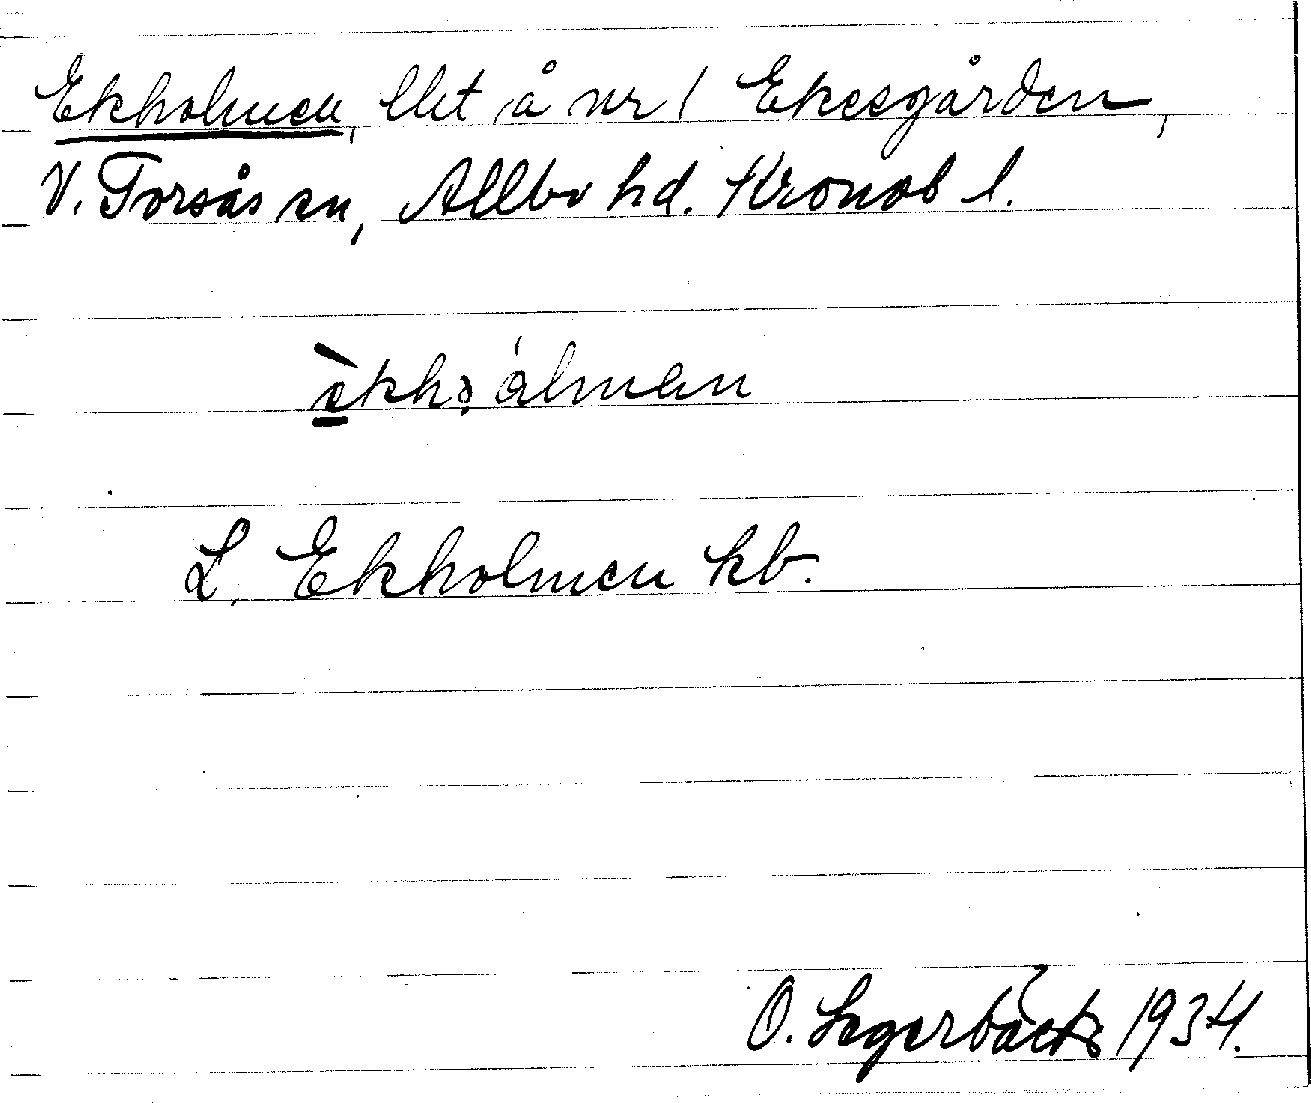 Ekholmen, lht å nr 1 Ekesgården,
V. Torsås sn, Allbo hd. Kronob l.
L. Ekholmen kb.
O. Lagerbäck 1934.